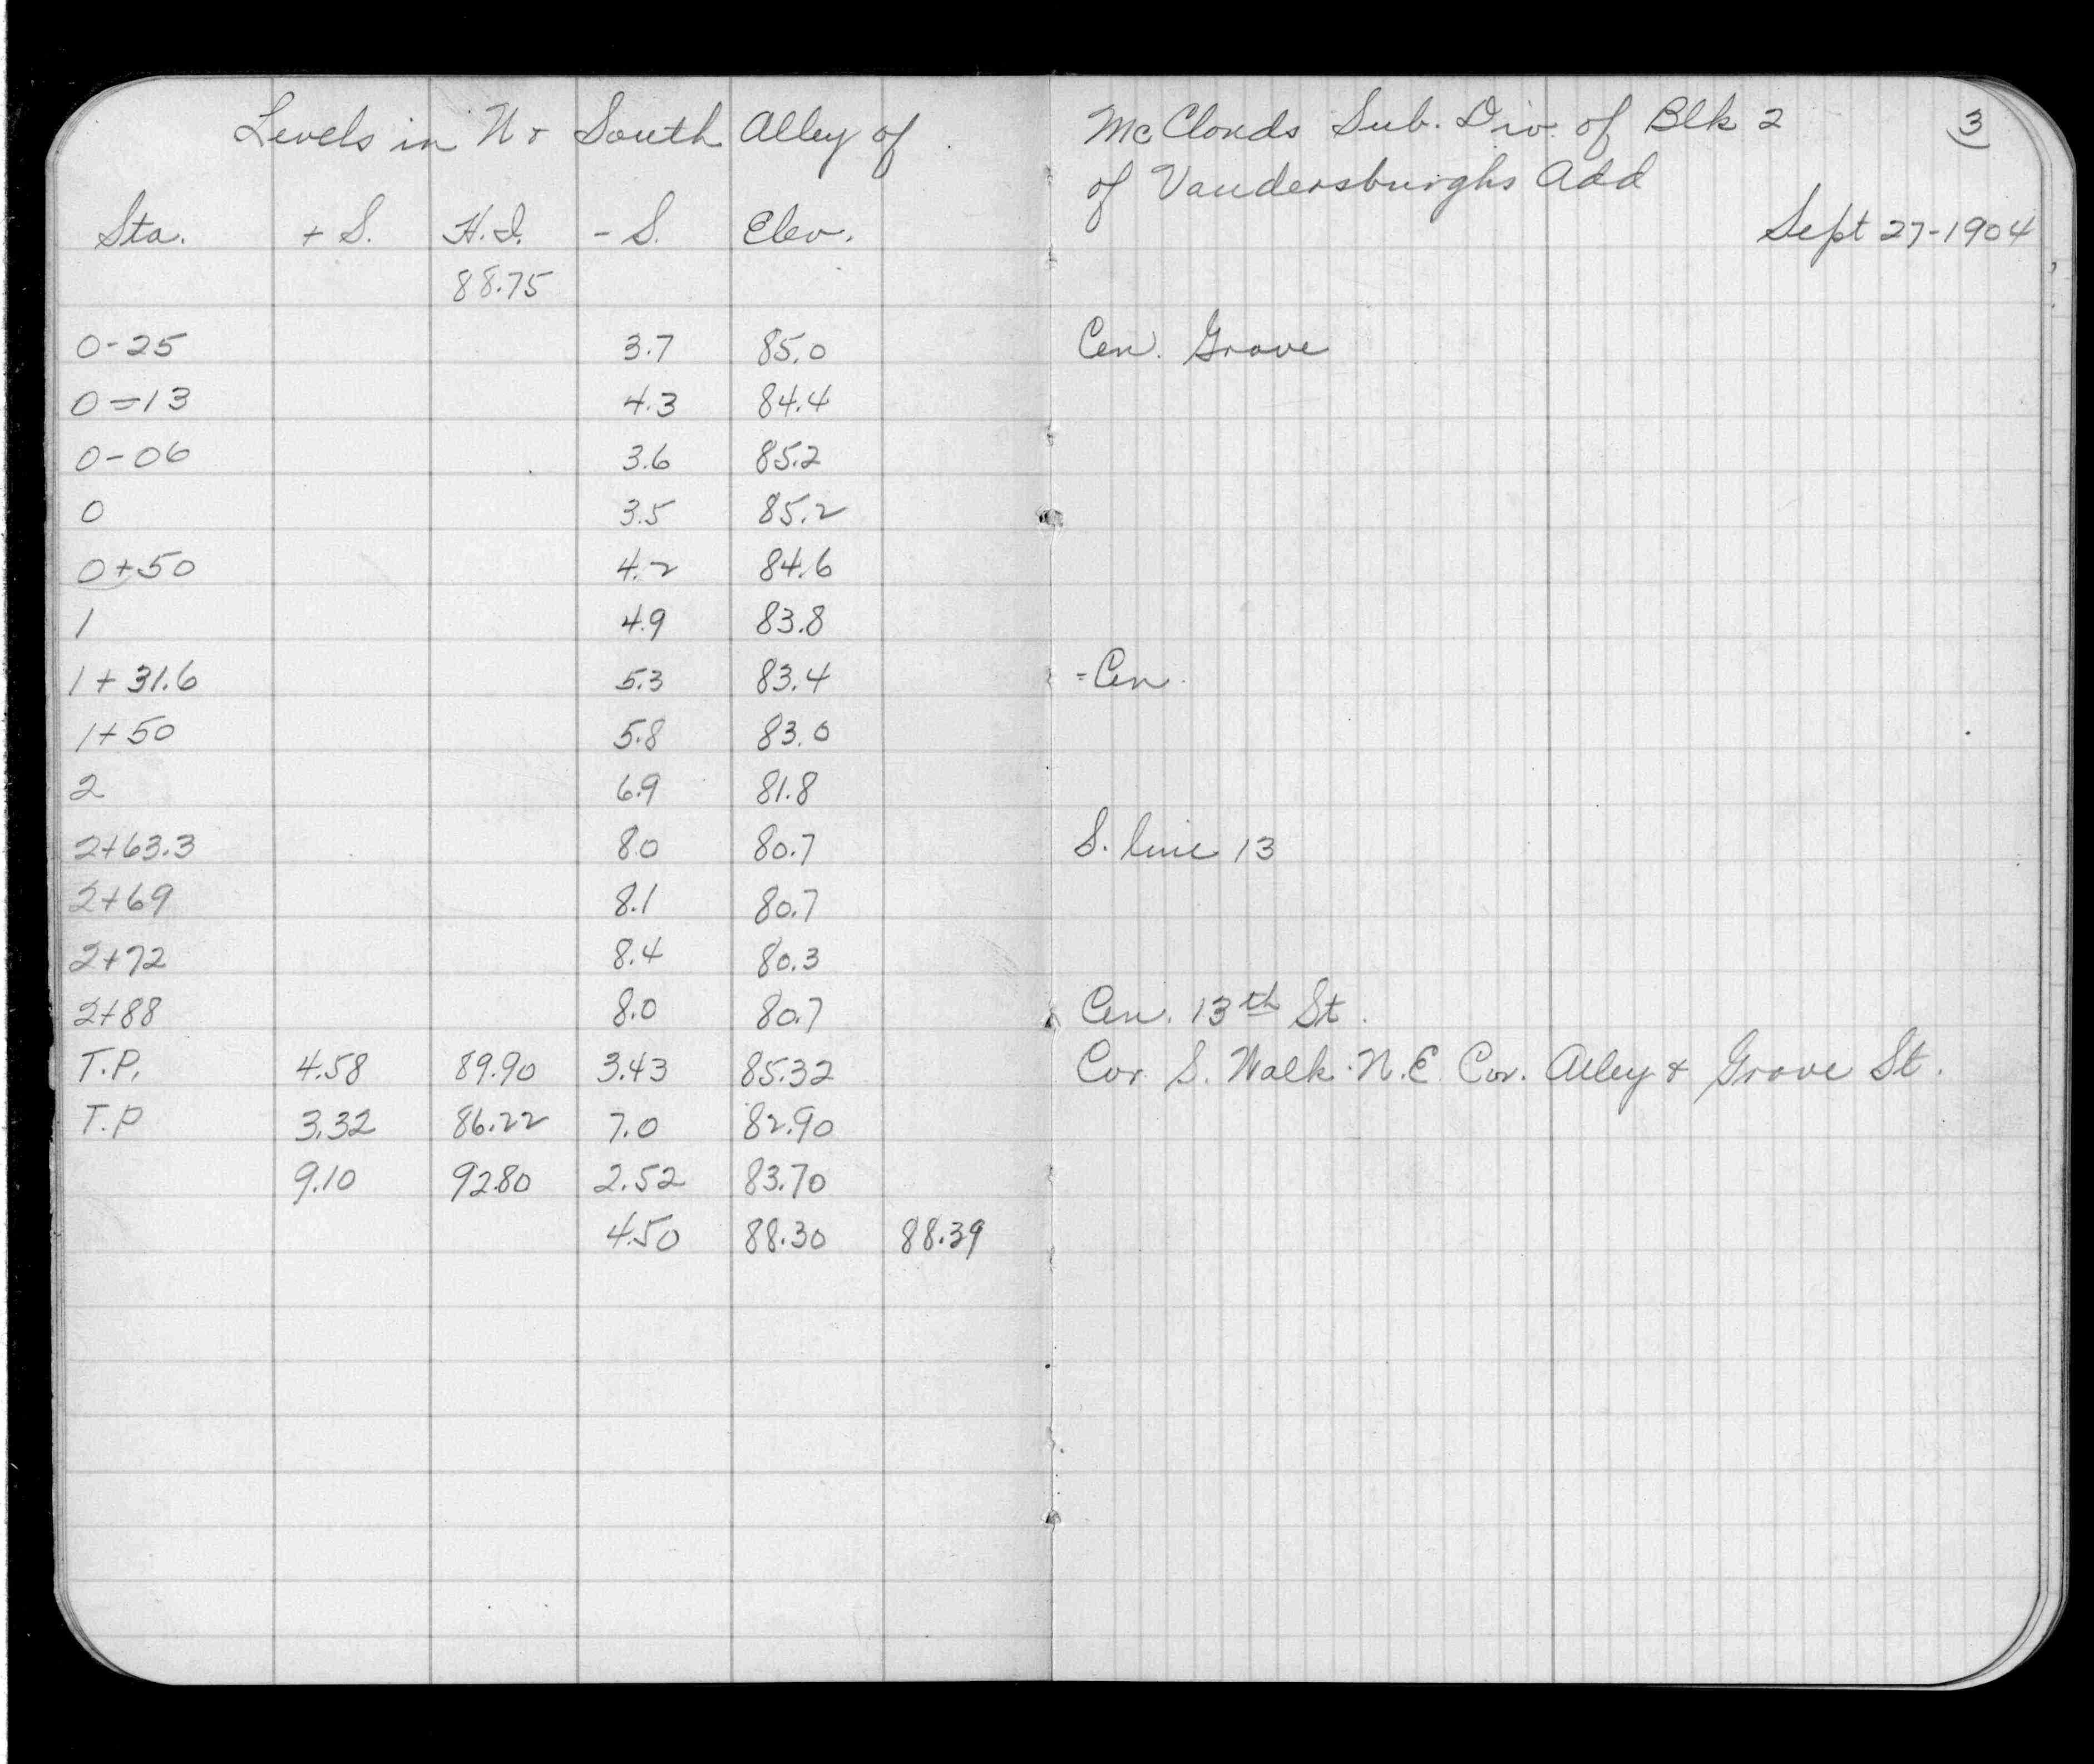 Levels in N + South Alley of
Sta. + S. H.I. - S. Elev.
88.75
0-25 3.7 85.0
0=13 4.3 84.4
0-06 3.6 85.2
0 3.5 85.2
0+50 4.2 84.6
1 4.9 83.8
1+31.6 5.3 83.4
1+50 5.8 83.0
2 6.9 81.8
2+63.3 8.0 80.7
2+69 8.1 80.7
2+72 8.4 80.3
2+88 8.0 80.7
T.P. 4.58 89.90 3.43 85.32
T.P 3.32 86.22 7.0 82.90
9.10 92.80 2.52 83.70
4.50 88.30 88.39
Mc Clouds Sub. Div. of Blk 2 3
of Vandersburghs Add
Sept 27-1904
Cen. Grove
= Cen.
S. line 13
Cen. 13th St.
Cor. S. Walk. N.E. Cor. Alley + Grove St.